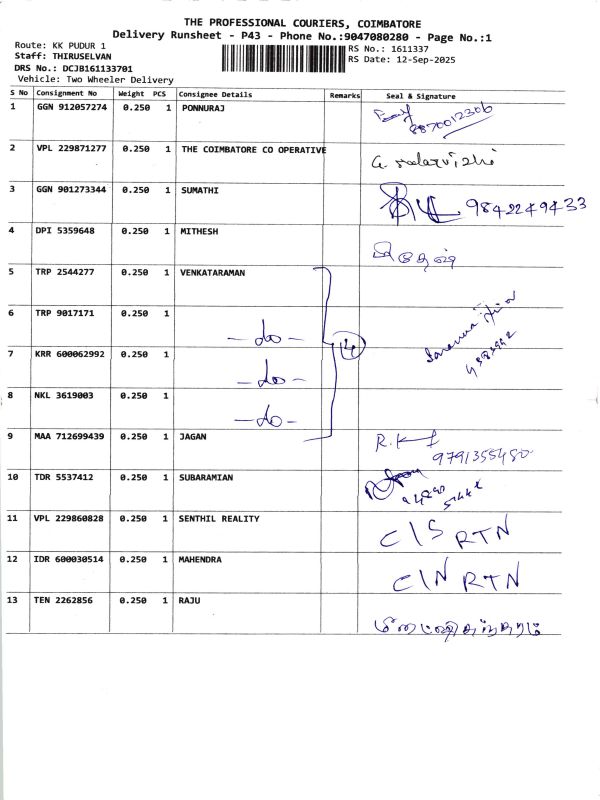 THE PROFESSIONAL COURIERS, COIMBATORE
Delivery Runsheet - P43 - Phone No.:9047080280 - Page No.:1
Route: KK PUDUR 1
Staff: THIRUSELVAN
DRS No.: DCJB161133701
Vehicle: Two Wheeler Delivery
RS No.: 1611337
RS Date: 12-Sep-2025
S No Consignment No Weight PCS Consignee Details Remarks Seal & Signature
1 GGN 912057274 0.250 1 PONNURAJ 8870012306
2 VPL 229871277 0.250 1 THE COIMBATORE CO OPERATIVE
3 GGN 901273344 0.250 1 SUMATHI 9842249433
4 DPI 5359648 0.250 1 MITHESH
5 TRP 2544277 0.250 1 VENKATARAMAN
6 TRP 9017171 0.250 1 -do-
7 KRR 600062992 0.250 1 -do-
8 NKL 3619003 0.250 1 -do-
9 MAA 712699439 0.250 1 JAGAN 9791355480
10 TDR 5537412 0.250 1 SUBARAMIAN
11 VPL 229860828 0.250 1 SENTHIL REALITY C/S RTN
12 IDR 600030514 0.250 1 MAHENDRA C/N RTN
13 TEN 2262856 0.250 1 RAJU